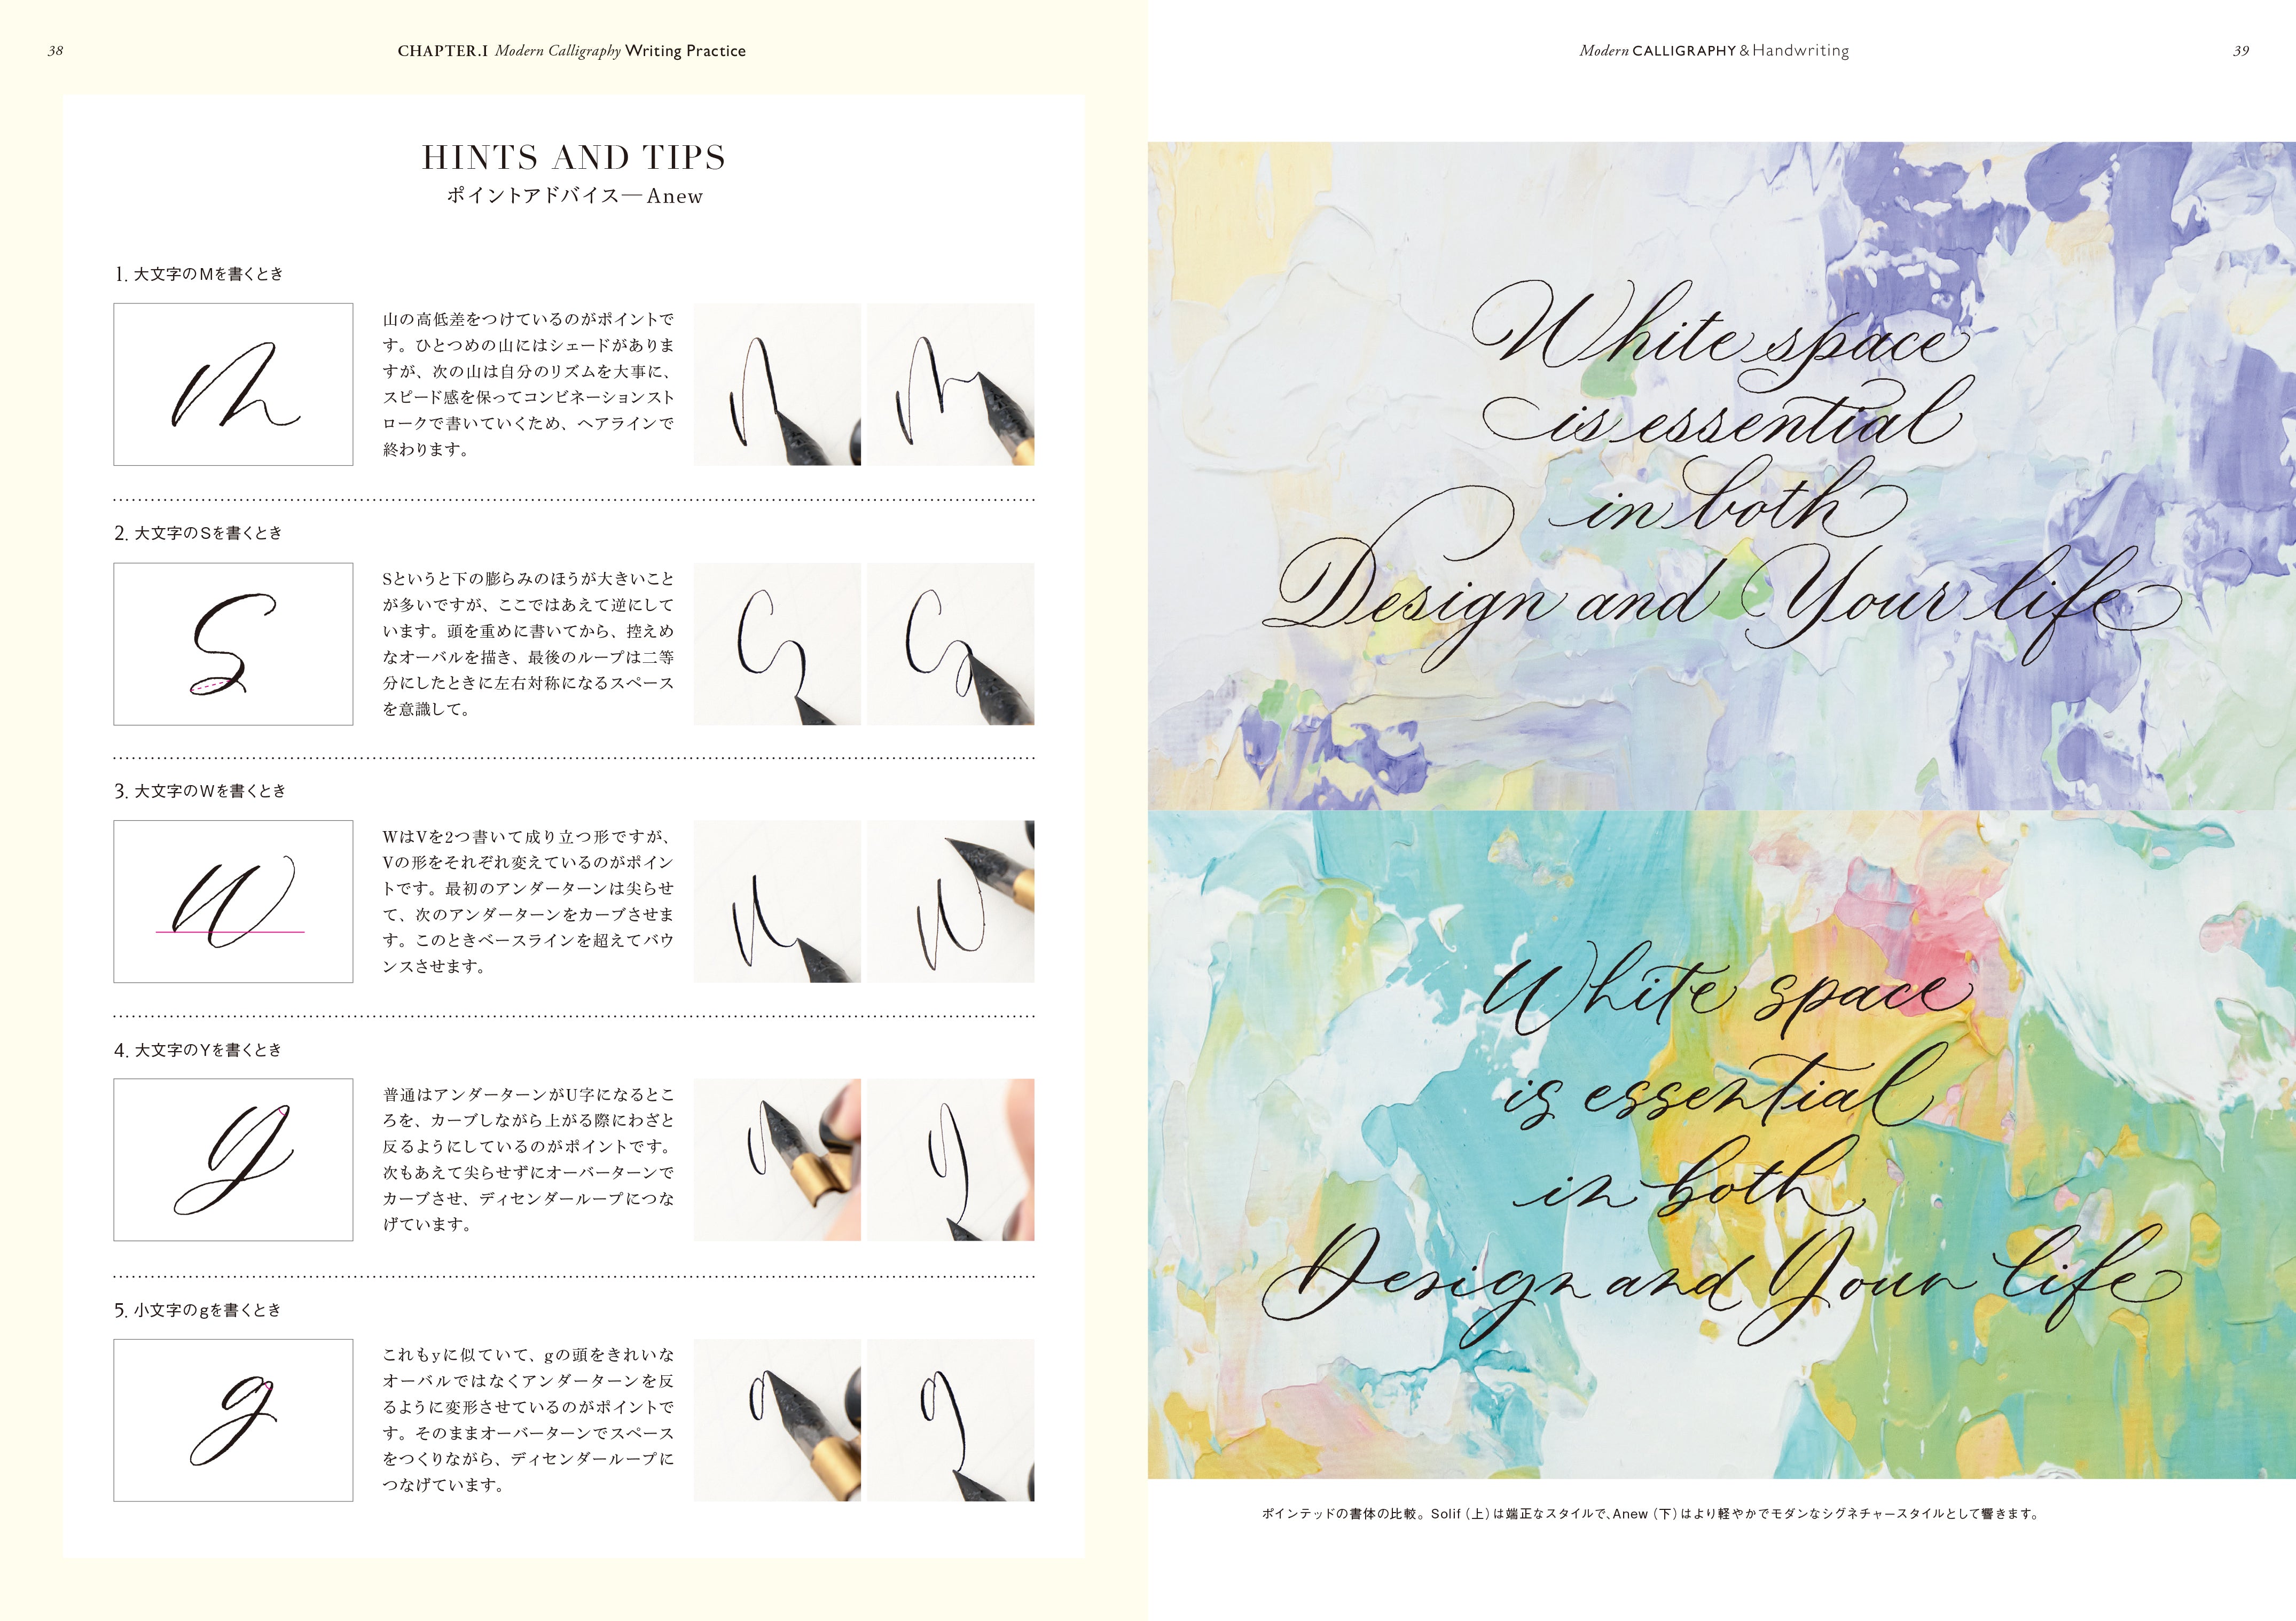 38
CHAPTER.I Modern Calligraphy Writing Practice
HINTS AND TIPS
ポイントアドバイス—Anew
1. 大文字のMを書くとき
M
山の高低差をつけているのがポイントで
す。ひとつめの山にはシェードがありま
すが、次の山は自分のリズムを大事に、
スピード感を保ってコンビネーションスト
ロークで書いていくため、ヘアラインで
終わります。
2. 大文字のSを書くとき
S
Sというと下の膨らみのほうが大きいこと
が多いですが、ここではあえて逆にして
います。頭を重めに書いてから、控えめ
なオーバルを描き、最後のループは二等
分にしたときに左右対称になるスペース
を意識して。
3. 大文字のWを書くとき
W
WはVを2つ書いて成り立つ形ですが、
Vの形をそれぞれ変えているのがポイン
トです。最初のアンダーターンは尖らせ
て、次のアンダーターンをカーブさせま
す。このときベースラインを超えてバウ
ンスさせます。
4. 大文字のYを書くとき
Y
普通はアンダーターンがU字になるとこ
ろを、カーブしながら上がる際にわざと
反るようにしているのがポイントです。
次もあえて尖らせずにオーバーターンで
カーブさせ、ディセンダーループにつな
げています。
5. 小文字のgを書くとき
g
これもyに似ていて、gの頭をきれいな
オーバルではなくアンダーターンを反
るように変形させているのがポイントで
す。そのままオーバーターンでスペース
をつくりながら、ディセンダーループに
つなげています。
Modern CALLIGRAPHY & Handwriting
39
White space
is essential
in both
Design and Your life
White space
is essential
in both
Design and Your life
ポインテッドの書体の比較。Solif（上）は端正なスタイルで、Anew（下）はより軽やかでモダンなシグネチャースタイルとして響きます。